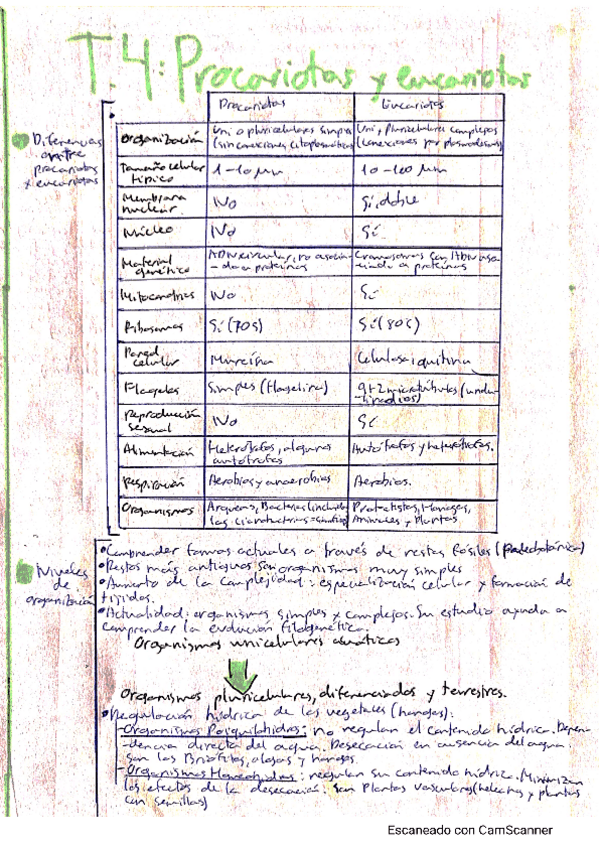 T.4: Procariotas y eucariotas
Procariotas Eucariotas
Diferencias entre procariotas y eucariotas
Organización Uni o pluricelulares simples (sin conexiones citoplasmáticas) Uni y Pluricelulares complejos (conexiones por plasmodesmos)
Tamaño celular típico 1-10 µm 10-100 µm
Membrana nuclear No Sí, doble
Núcleo No Sí
Material genético ADN circular, no asociado a proteínas Cromosomas con ADN asociado a proteínas
Mitocondrias No Sí
Ribosomas Sí (70s) Sí (80s)
Pared celular Mureína Celulosa i quitina
Flagelos Simples (flagelina) 9+2 microtúbulos (undulipodios)
Reproducción sexual No Sí
Alimentación Heterótrofos, algunos autótrofos Autótrofos y heterótrofos.
Respiración Aerobios y anaerobios Aerobios.
Organismos Arqueas, Bacterias (incluidas las cianobacterias = Protoctistas, Hongos, Animales y Plantas
Niveles de organización
•Comprender formas actuales a través de restos fósiles (paleobotánica)
•Restos más antiguos son organismos muy simples
•Aumento de la complejidad: especialización celular y formación de
tejidos.
•Actualidad: organismos simples y complejos. Su estudio ayuda a
comprender la evolución filogenética.
Organismos unicelulares acuáticos
Organismos pluricelulares, diferenciados y terrestres.
•Regulación hídrica de los vegetales (hongos):
-Organismos Poiquilohidros: no regulan el contenido hídrico. Depen-
-dencia directa del agua. Desecación en ausencia del agua
son las Briófitos, algas y hongos.
-Organismos Homeohidros: regulan su contenido hídrico. Minimizan
los efectos de la desecación: son Plantas vasculares (helechos y plantas
con semillas)
Escaneado con CamScanner